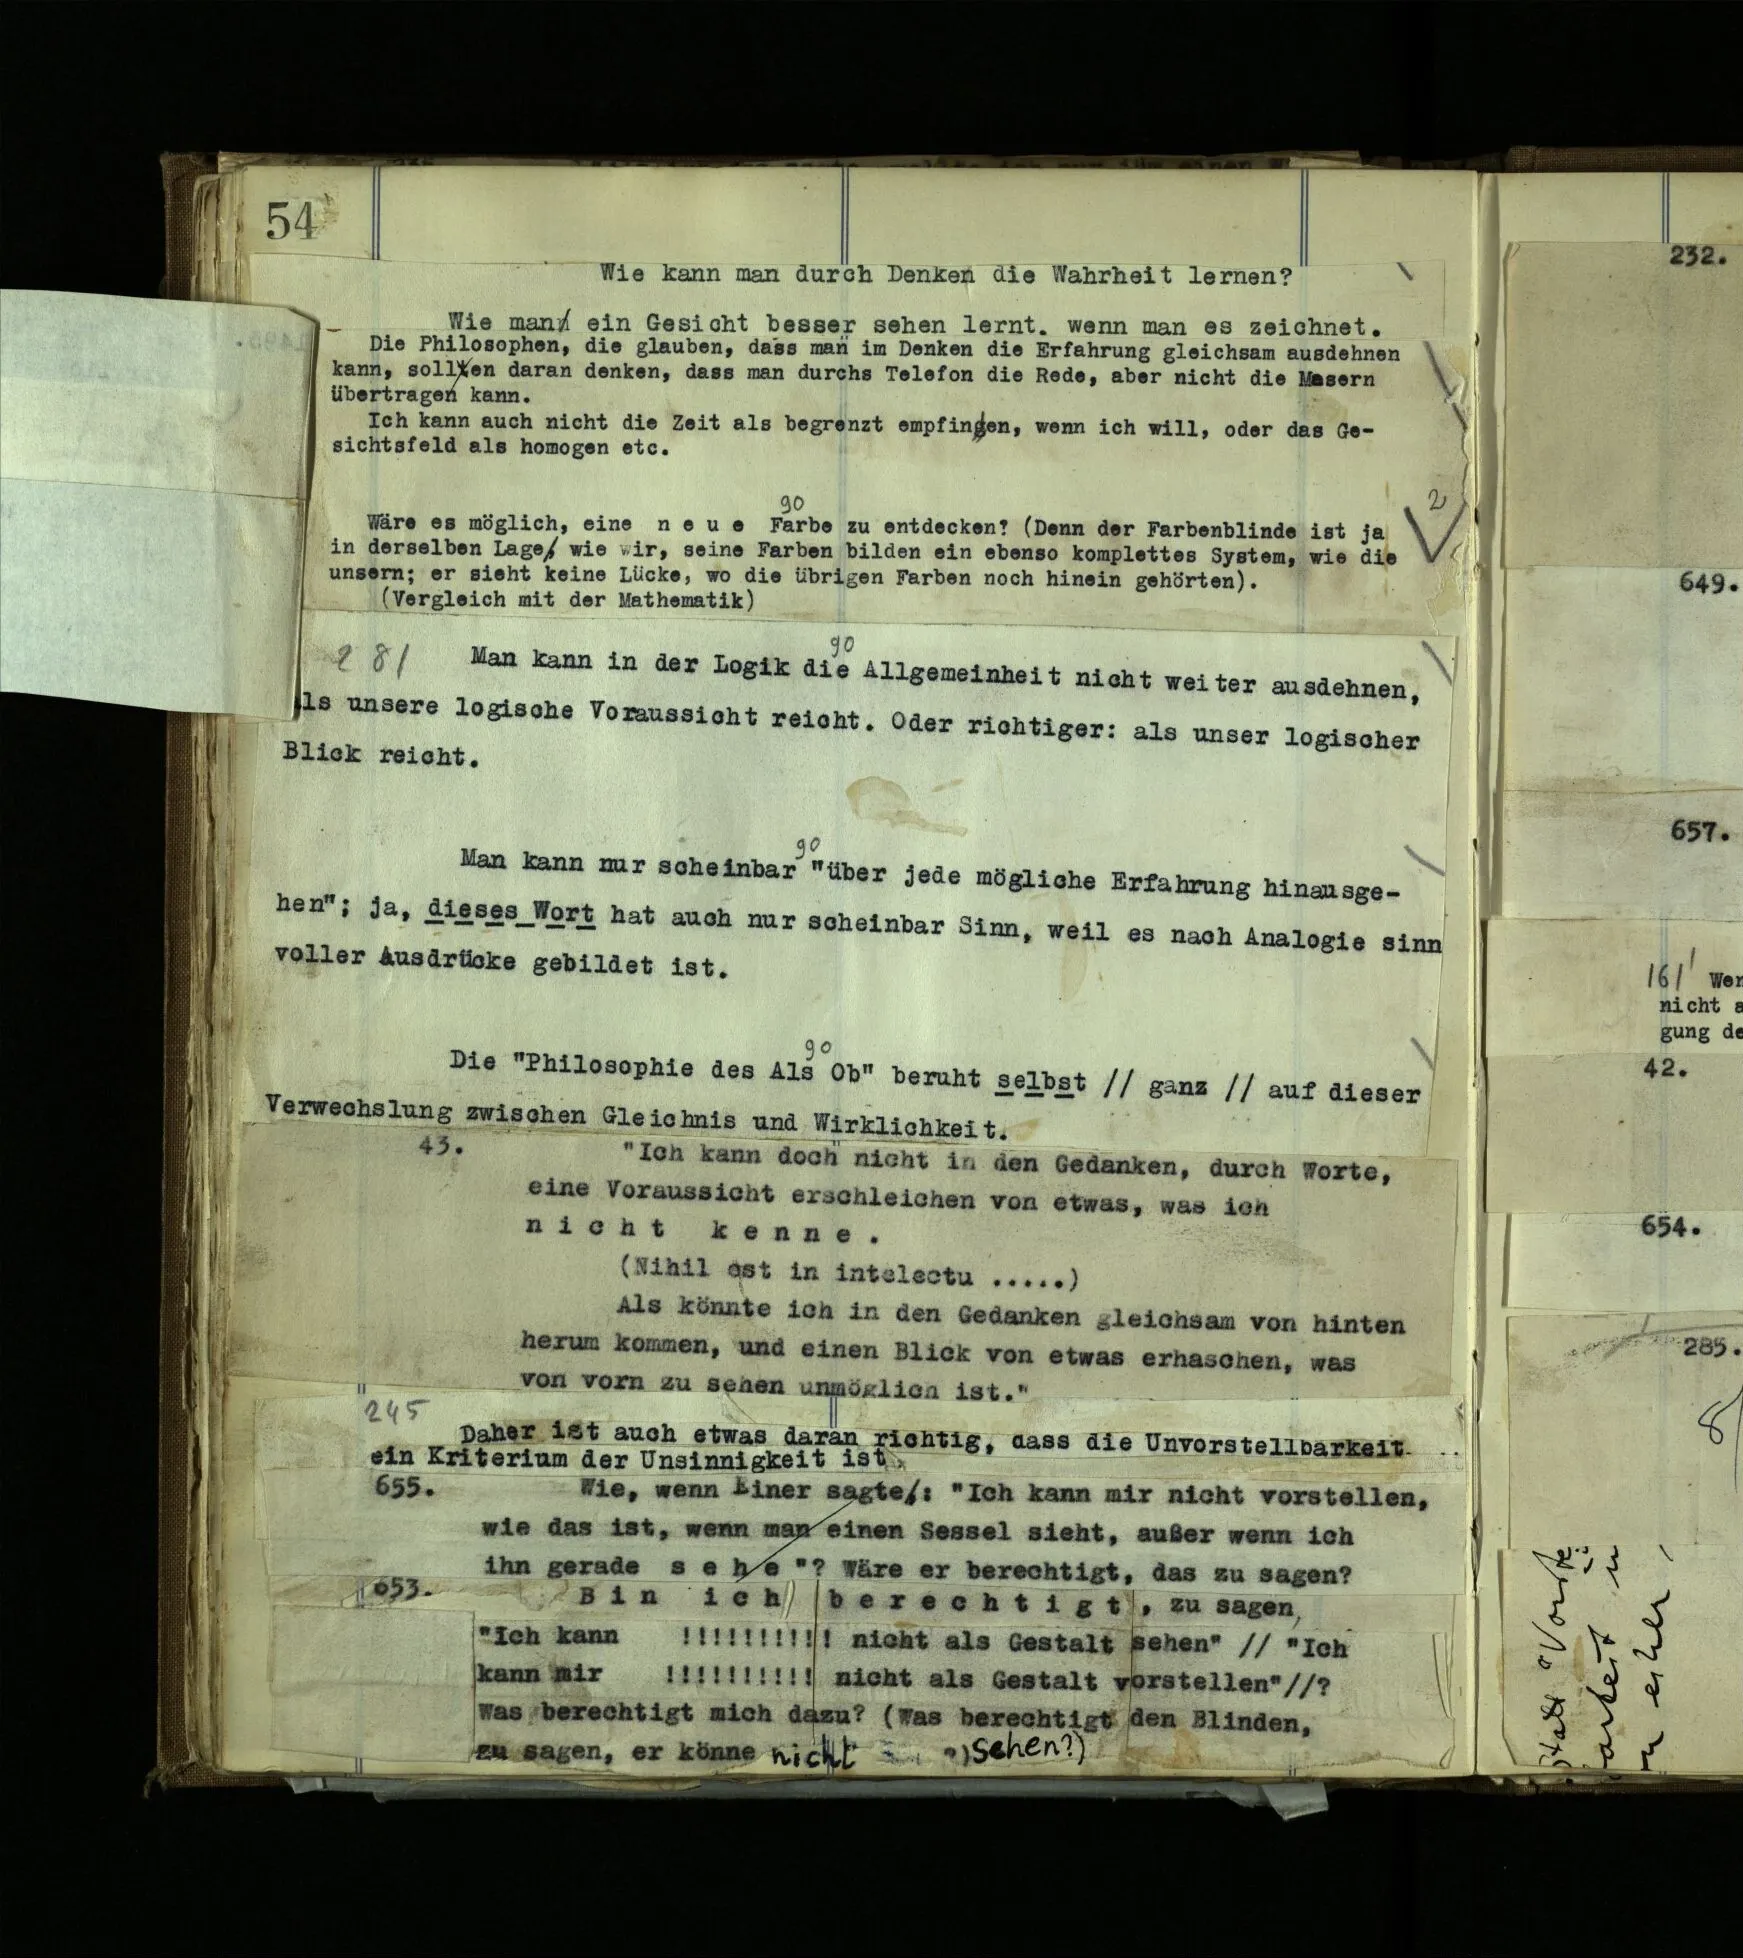 54
Wie kann man durch Denken die Wahrheit lernen?
Wie man ein Gesicht besser sehen lernt. wenn man es zeichnet.
Die Philosophen, die glauben, dass man im Denken die Erfahrung gleichsam ausdehnen
kann, sollten daran denken, dass man durchs Telefon die Rede, aber nicht die Masern
übertragen kann.
Ich kann auch nicht die Zeit als begrenzt empfinden, wenn ich will, oder das Ge-
sichtsfeld als homogen etc.
90
2
Wäre es möglich, eine n e u e Farbe zu entdecken? (Denn der Farbenblinde ist ja
in derselben Lage, wie wir, seine Farben bilden ein ebenso komplettes System, wie die
unsern; er sieht keine Lücke, wo die übrigen Farben noch hinein gehörten).
(Vergleich mit der Mathematik)
90
281 Man kann in der Logik die Allgemeinheit nicht weiter ausdehnen,
ls unsere logische Voraussicht reicht. Oder richtiger: als unser logischer
Blick reicht.
90
Man kann nur scheinbar "über jede mögliche Erfahrung hinausge-
hen"; ja, dieses Wort hat auch nur scheinbar Sinn, weil es nach Analogie sinn
voller Ausdrücke gebildet ist.
90
Die "Philosophie des Als Ob" beruht selbst // ganz // auf dieser
Verwechslung zwischen Gleichnis und Wirklichkeit.
43. "Ich kann doch nicht in den Gedanken, durch Worte,
eine Voraussicht erschleichen von etwas, was ich
n i c h t k e n n e .
(Nihil est in intelectu .....)
Als könnte ich in den Gedanken gleichsam von hinten
herum kommen, und einen Blick von etwas erhaschen, was
von vorn zu sehen unmöglich ist."
245
Daher ist auch etwas daran richtig, dass die Unvorstellbarkeit
ein Kriterium der Unsinnigkeit ist
655. Wie, wenn Einer sagte: "Ich kann mir nicht vorstellen,
wie das ist, wenn man einen Sessel sieht, außer wenn ich
ihn gerade s e h e "? Wäre er berechtigt, das zu sagen?
653. B i n i c h b e r e c h t i g t , zu sagen
"Ich kann !!!!!!!!!!! nicht als Gestalt sehen" // "Ich
kann mir !!!!!!!!!! nicht als Gestalt vorstellen"//?
Was berechtigt mich dazu? (Was berechtigt den Blinden,
zu sagen, er könne nicht sehen?)
232.
649.
657.
161 Wen
nicht a
gung de
42.
654.
285.
8